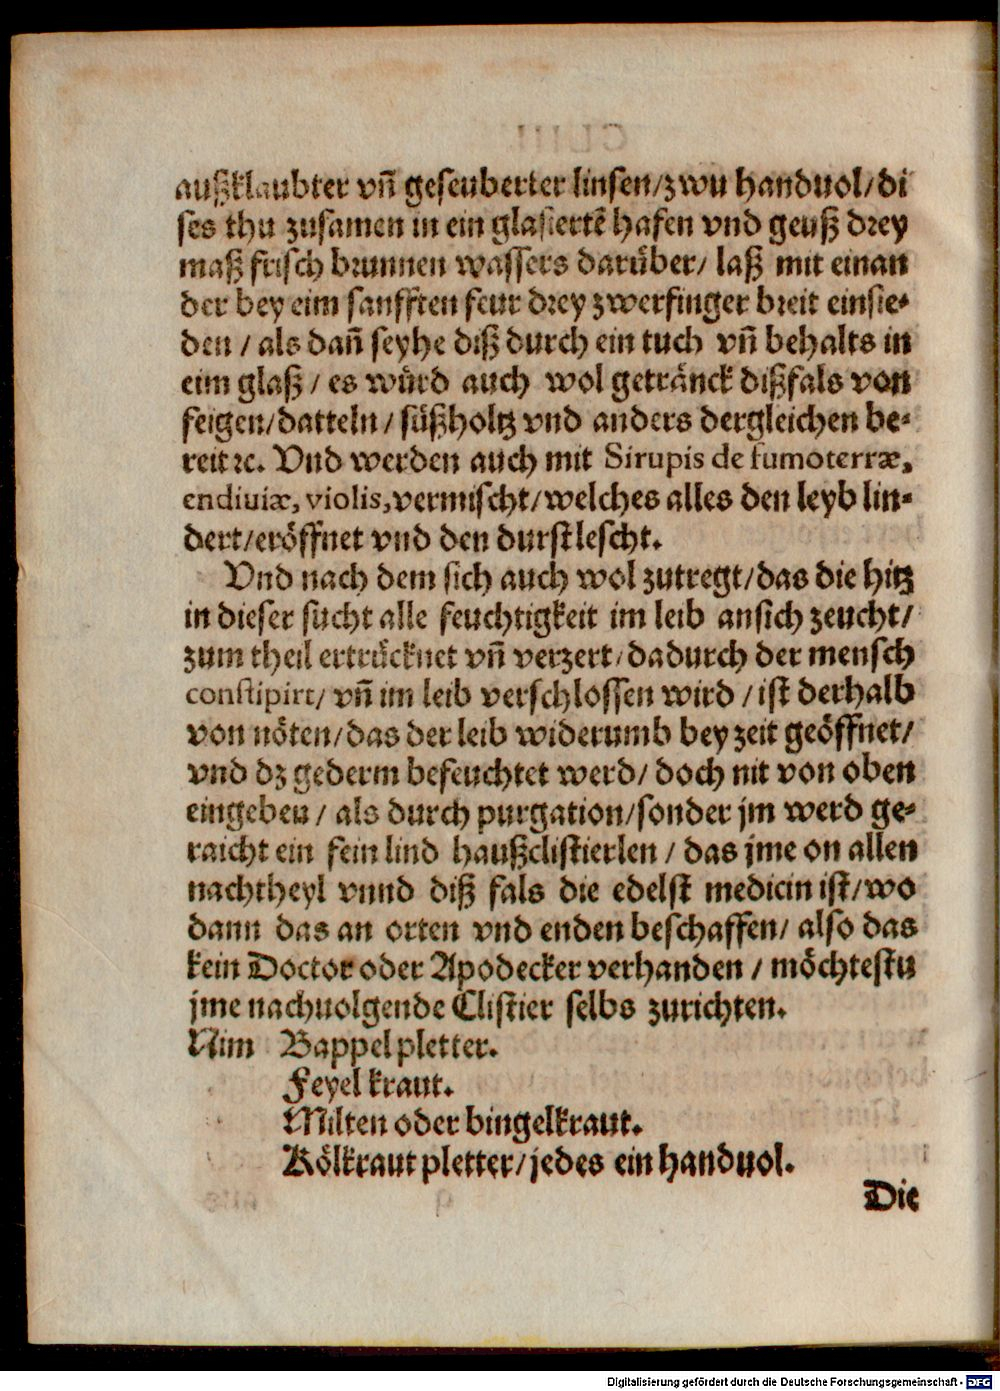 außklaubter vñ geseuberter linsen/zwu handuol/di
ses thu zusamen in ein glasiertẽ hafen vnd geuß drey
maß frisch brunnen wassers darüber/ laß mit einan
der bey eim sanfften feur drey zwerfinger breit einsie⸗
den / als dañ seyhe diß durch ein tuch vñ behalts in
eim glaß / es würd auch wol getränck dißfals von
feigen/datteln / süßholtz vnd anders dergleichen be⸗
reit ꝛc. Vnd werden auch mit Sirupis de fumoterræ,
endiuiæ, violis, vermischt/welches alles den leyb lin⸗
dert/eröffnet vnd den durst lescht.
Vnd nach dem sich auch wol zutregt/das die hitz
in dieser sucht alle feuchtigkeit im leib ansich zeucht/
zum theil ertrücknet vñ verzert/dadurch der mensch
constipirt/ vñ im leib verschlossen wird / ist derhalb
von nöten/das der leib widerumb bey zeit geöffnet/
vnd dz gederm befeuchtet werd/ doch nit von oben
eingeben / als durch purgation/sonder jm werd ge⸗
raicht ein fein lind haußclistierlen / das jme on allen
nachtheyl vnnd diß fals die edelst medicin ist/wo
dann das an orten vnd enden beschaffen/ also das
kein Doctor oder Apodecker verhanden / möchtestu
jme nachuolgende Clistier selbs zurichten.
Nim Bappel pletter.
Feyel kraut.
Milten oder bingelkraut.
Kölkraut pletter/jedes ein handuol.
Die
Digitalisierung gefördert durch die Deutsche Forschungsgemeinschaft - DFG